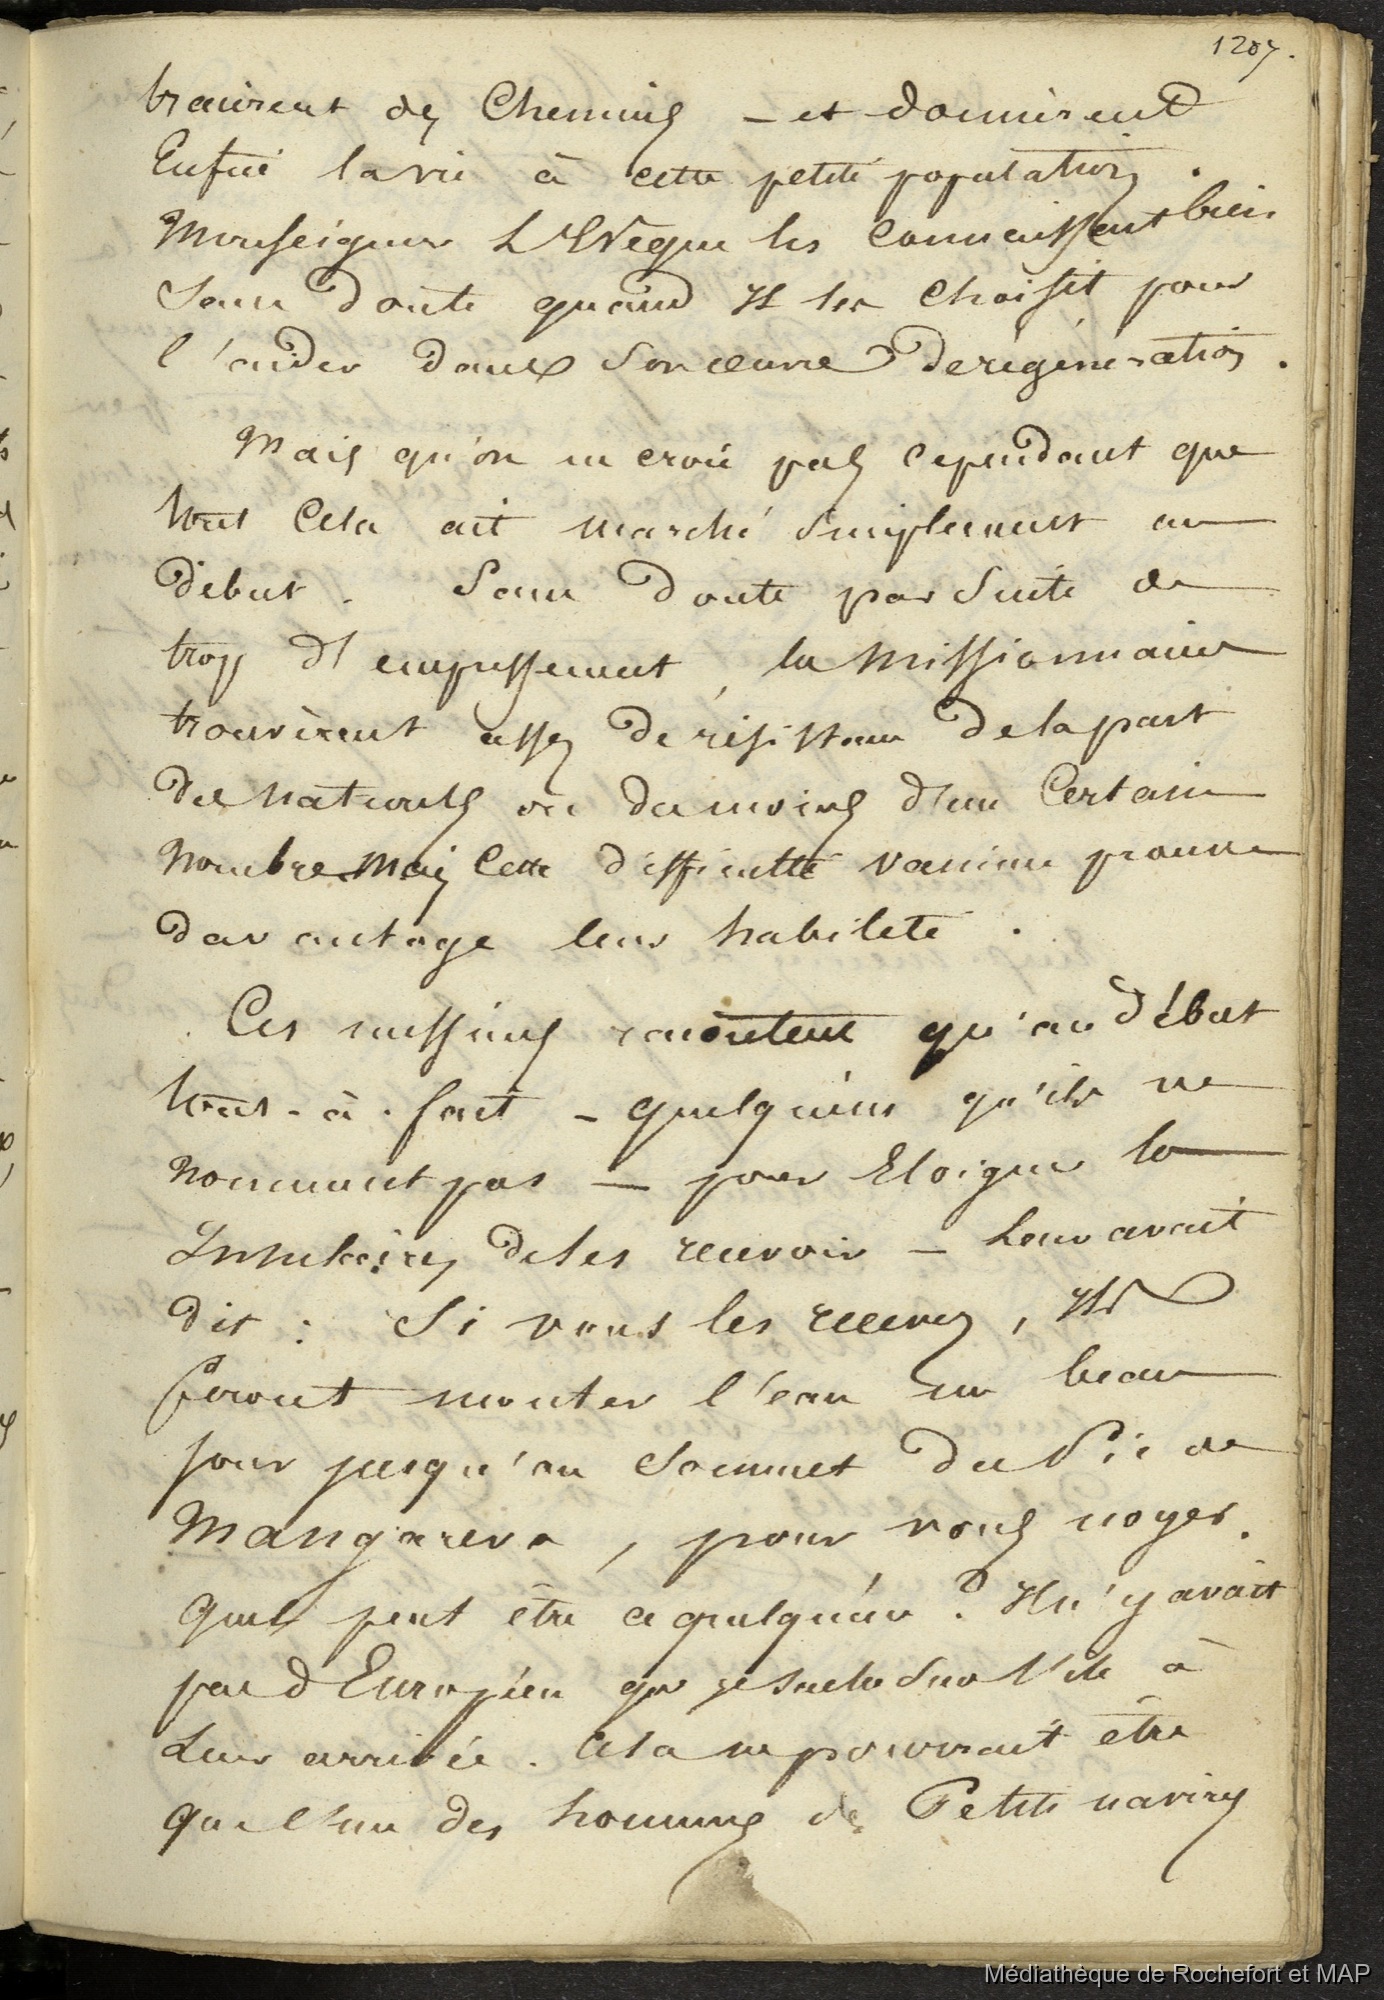 1207.
tracèrent des Chemins – et donnèrent
Enfin la vie à cette petite population.
Monseigneur L'Evêque les Connaissait bien
Sans doute quand Il les Choisit pour
l'aider dans Son œuvre de régénération.
Mais qu'on ne croie pas Cependant que
tout Cela ait marché Simplement au
début. Sans doute par Suite de
trop d'empressement, les Missionnaires
trouvèrent assez de résistance de la part
des naturels ou du moins d'un Certain
Nombre. Mais Cette difficulté vaincue prouve
davantage leur habileté.
Ces messieurs racontent qu'au Début
tout-à-fait – quelqu'un qu'ils ne
Nomment pas – pour Eloigner les
Insulaires de les recevoir – Leur avait
dit : Si vous les recevez, Ils
feront monter l'eau un beau
jour jusqu'au Sommet du Pic de
Mangareva, pour vous noyer.
Quel peut être ce quelqu'un ? Il n'y avait
pas d'Européen que je Sache Sur l'île à
Leur arrivée. Cela ne pourrait être
que l'un des hommes des Petits navires
Médiathèque de Rochefort et MAP